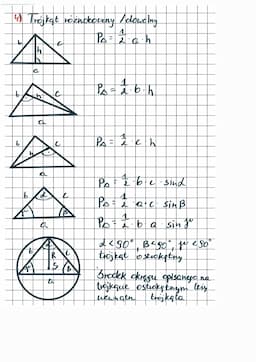 4) Trójkąt różnoboczny / dowolny
b h c
a
P△ = 1/2 a · h
b h c
a
P△ = 1/2 b · h
b h c
a
P△ = 1/2 c · h
b α c
γ β
a
P△ = 1/2 · b · c · sin α
P△ = 1/2 · a · c · sin β
P△ = 1/2 · b · a · sin γ
α < 90°, β < 90°, γ < 90°
trójkąt ostrokątny
b R c
γ S β
a
Środek okręgu opisanego na
trójkącie ostrokątnym leży
wewnątrz trójkąta